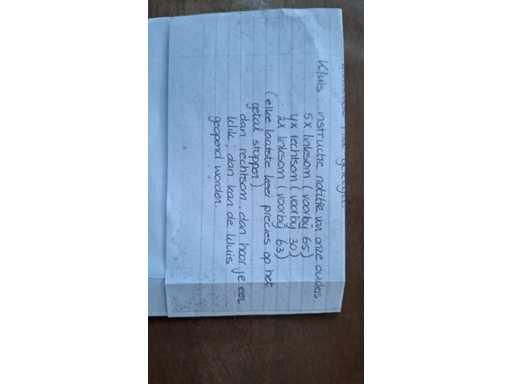 Kluis instructie notitie van onze ouders
5x linksom (voorbij 65)
4x rechtsom (voorbij 30)
2x linksom (voorbij 63)
(elke laatste keer precies op het
getal stoppen)
dan rechtsom, dan hoor je een
klik; dan kan de kluis
geopend worden.